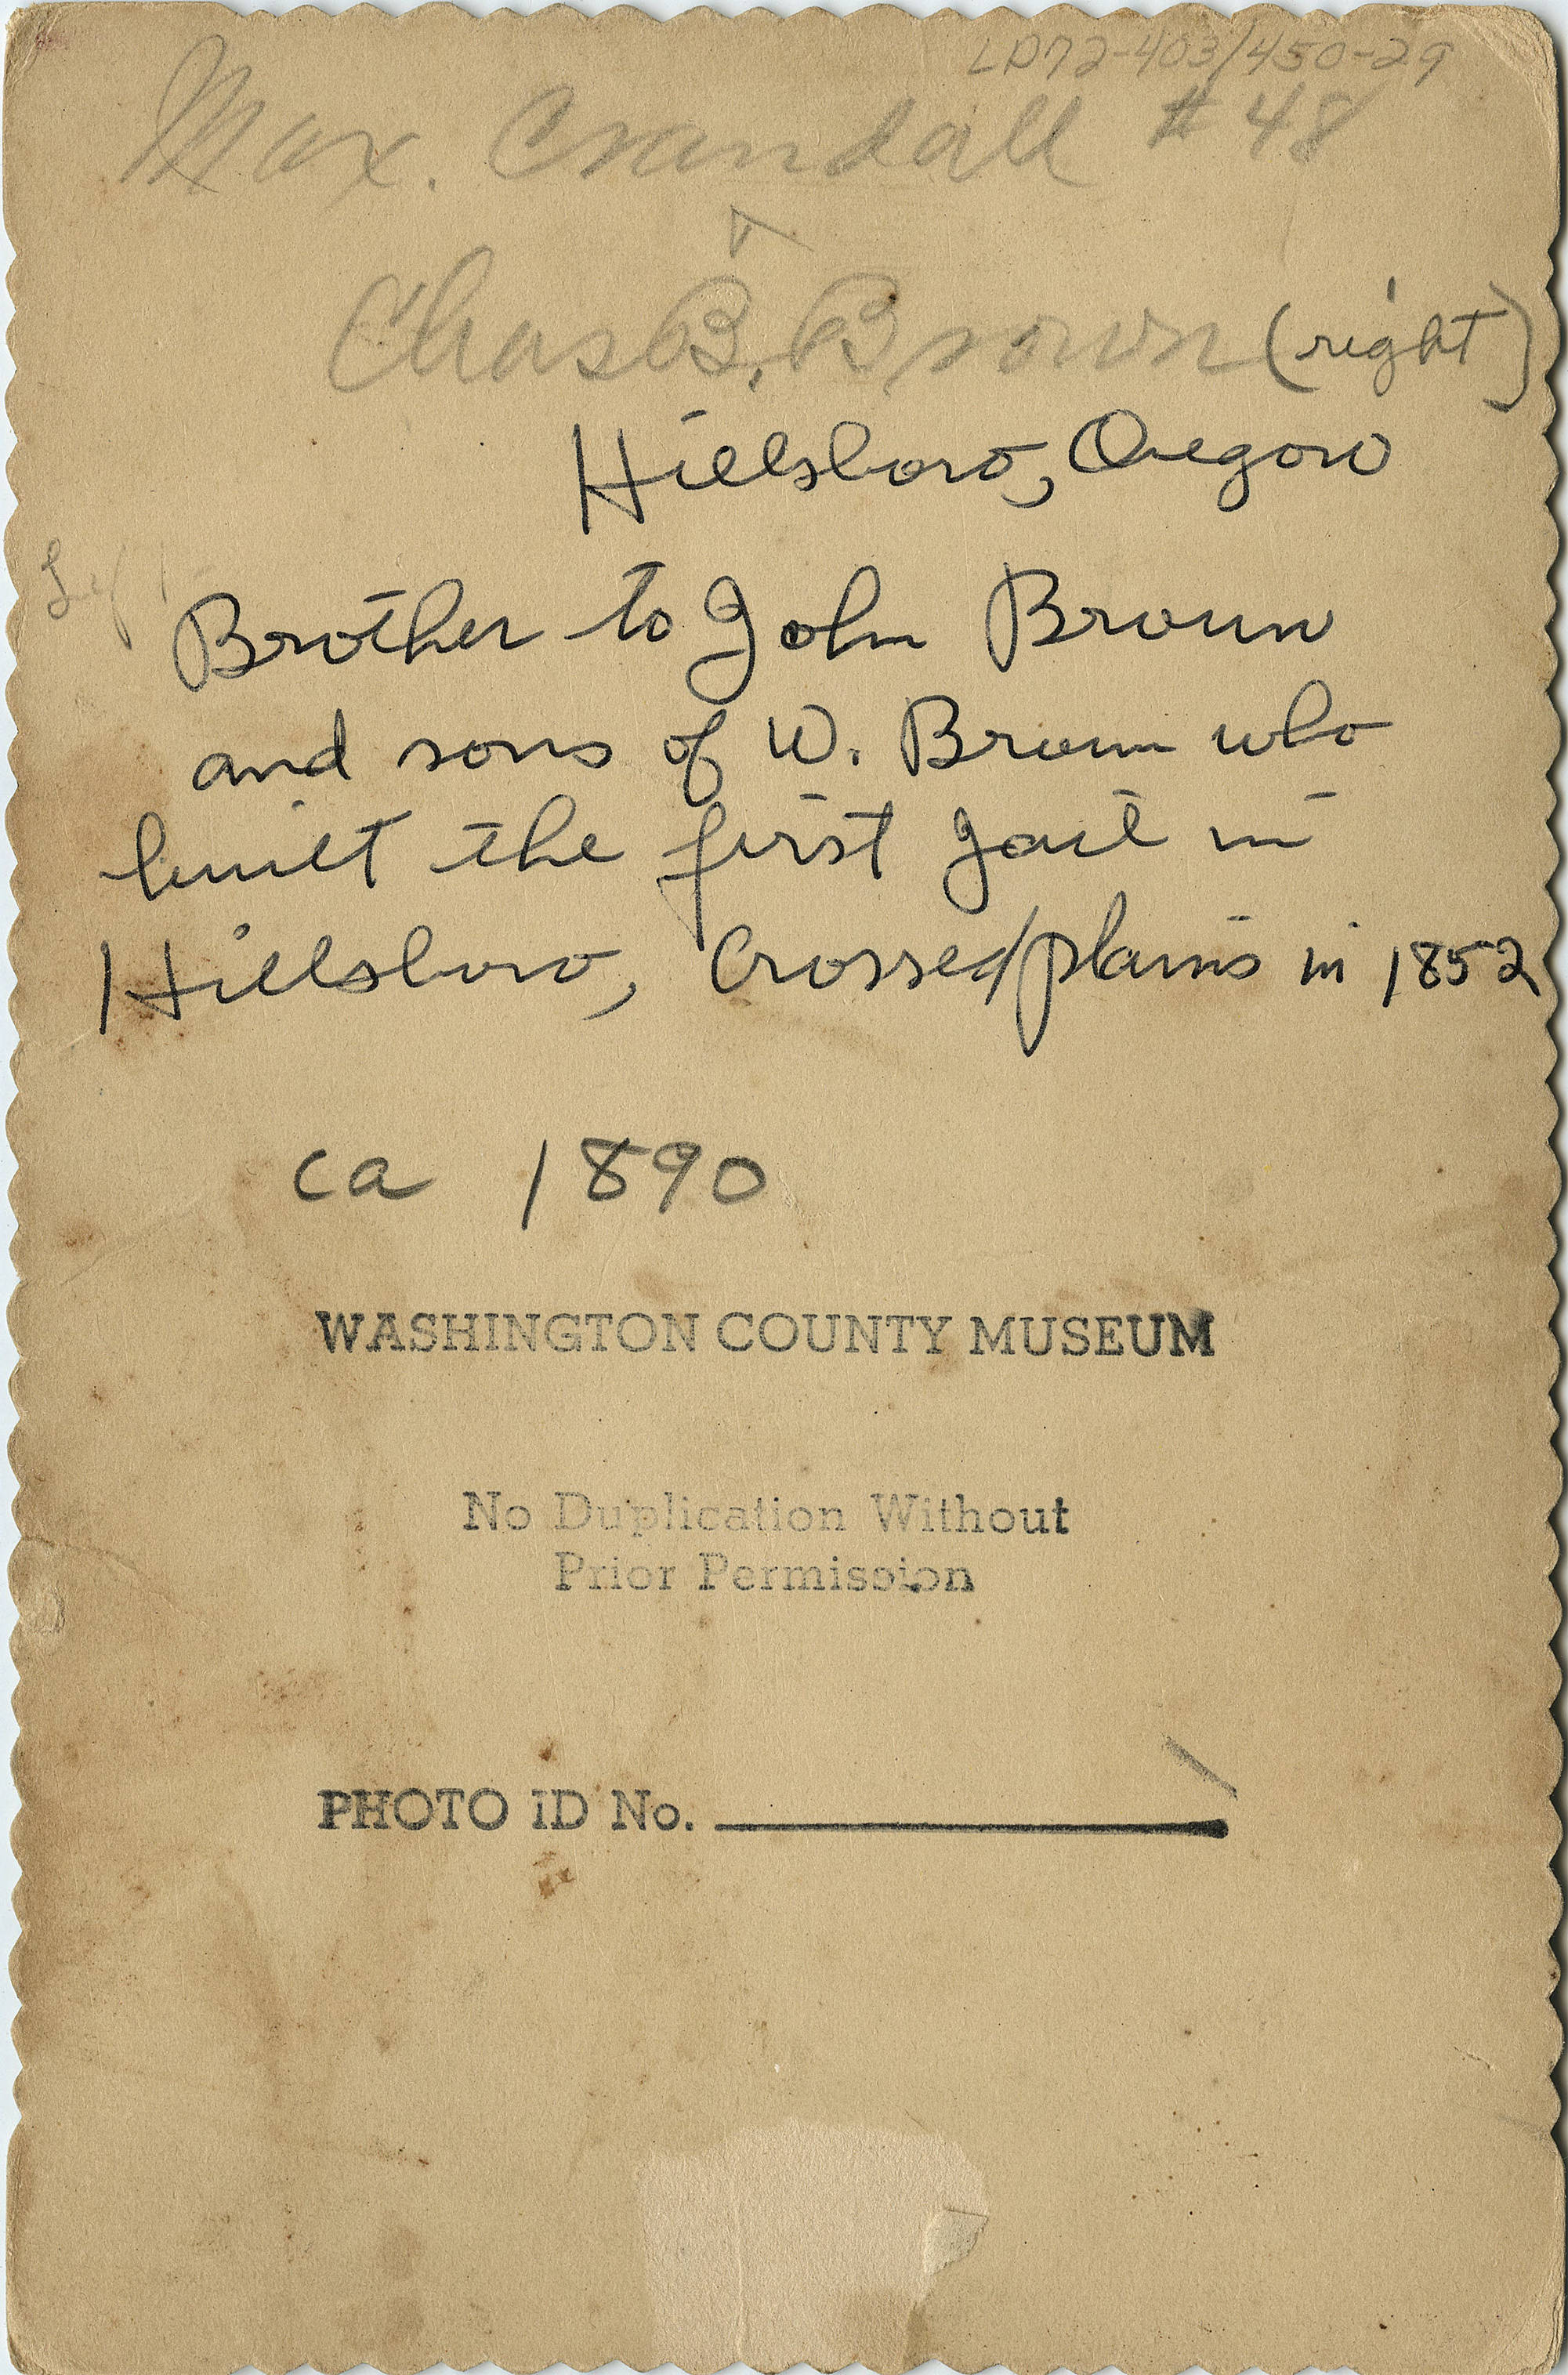 LP72-403/450-29
Max. Crandall #48
Chas B. Brown (right)
Hillsboro, Oregon
Left
Brother to John Brown
and sons of W. Brown who
built the first jail in
Hillsboro, Crossed plains in 1852
ca 1890
WASHINGTON COUNTY MUSEUM
No Duplication Without
Prior Permission
PHOTO ID No.